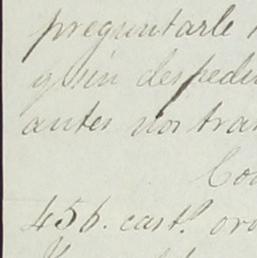 preguntarle
y sin despedi
antes nos tra
Co
456. cast.s oro